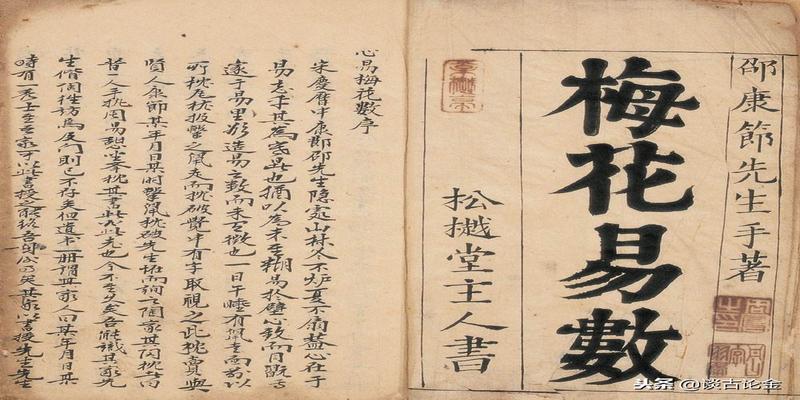 邵康節先生手著
梅花易數
松樾堂主人書
心易梅花數序
宋慶曆中康節邵先生隱處山林冬不炉夏不扇蓋心在于
易忘乎其為寒暑也猶以為未至糊易於壁心致而目翫焉
邃于易理欲造易之數而未有徵也一日午睡有鼠走而前以
所枕瓦枕投擊之鼠走而枕破覺中有字取視之此枕賣與
賢人康節某年月日某時擊鼠枕破先生怪而詢之陶家其陶枕者曰
昔一人手執周易憩坐舉枕其書此必此老也今不至久矣吾能識其家先
生偕陶往訪焉及門則已不存矣但遺書一冊謂其家人曰某年月日某
時有一秀士至吾家可以此書授之能終吾矣其家以書授先生先生
头条 @谈古论金